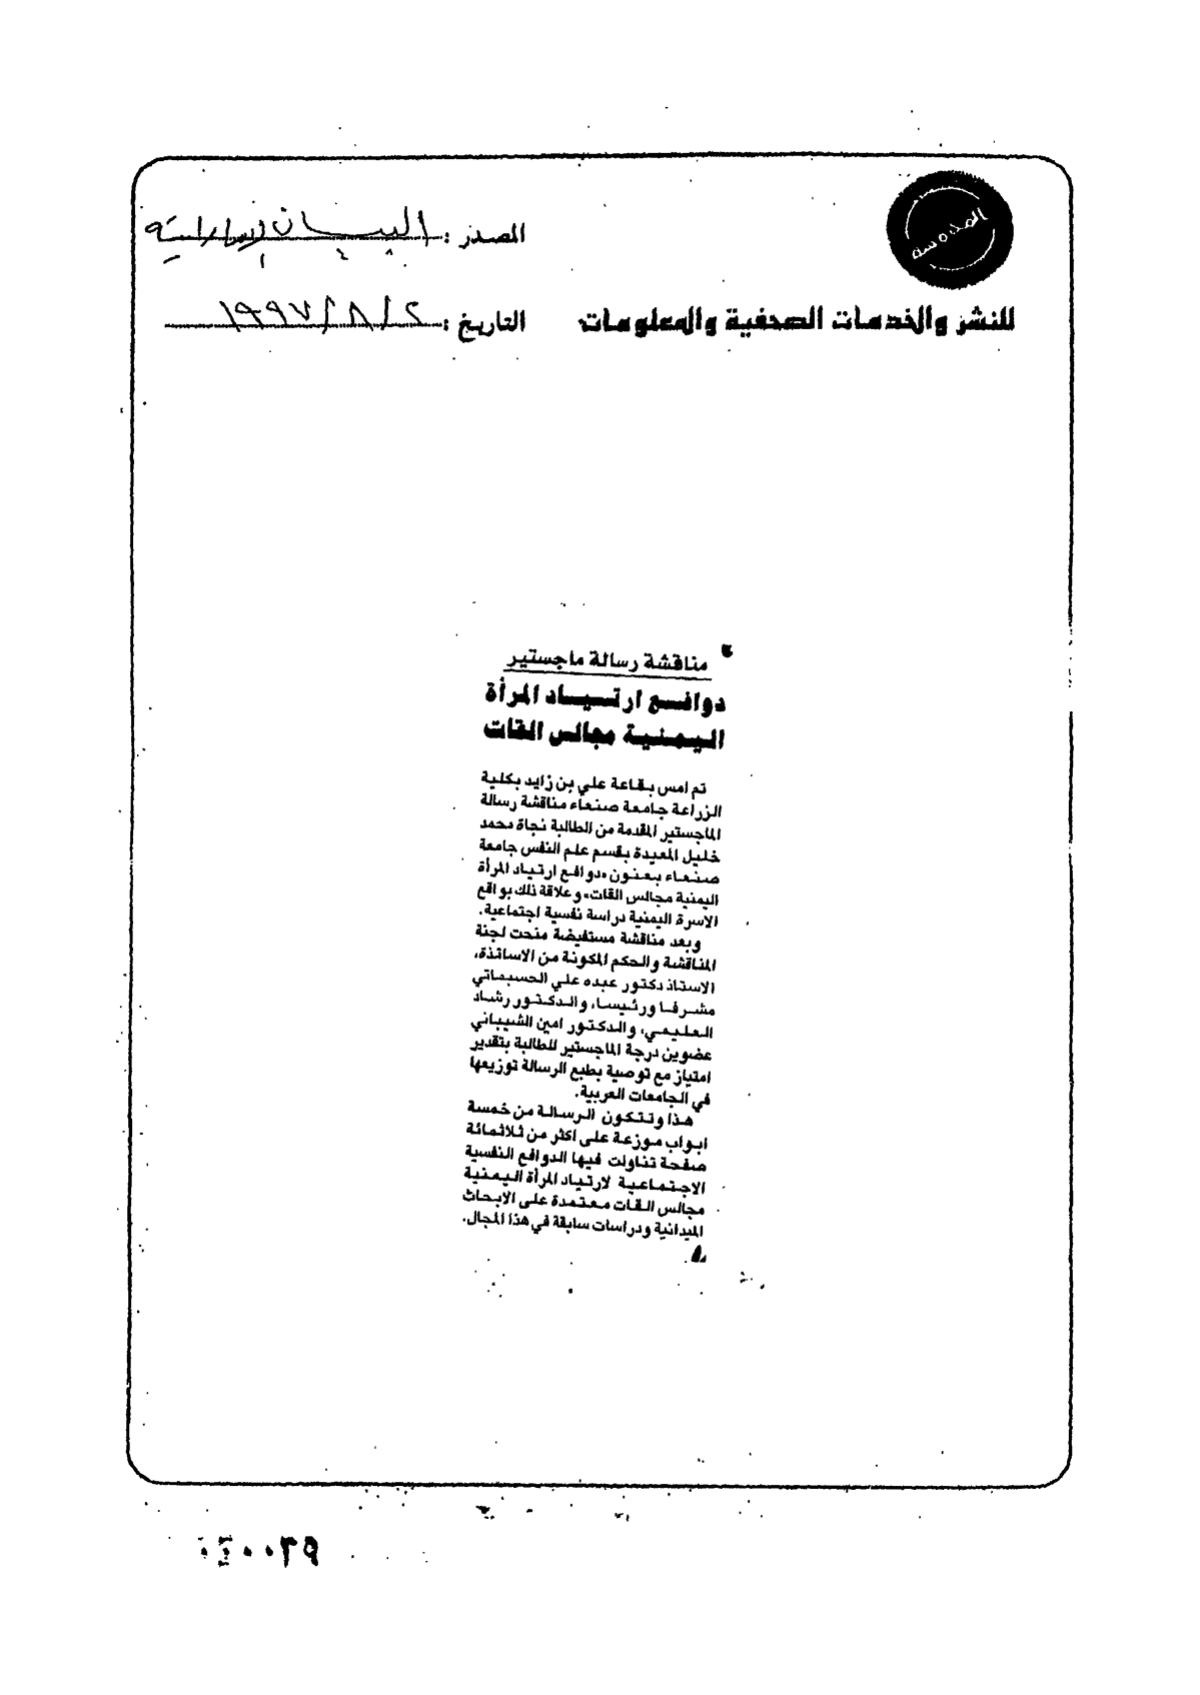 المصدر : البيان الإماراتية
للنشر والخدمات الصحفية والمعلومات
التاريخ : ٢ / ٨ / ١٩٩٧
مناقشة رسالة ماجستير
دوافع ارتياد المرأة
اليمنية مجالس القات
تم امس بقاعة علي بن زايد بكلية
الزراعة جامعة صنعاء مناقشة رسالة
الماجستير المقدمة من الطالبة نجاة محمد
خليل المعيدة بقسم علم النفس جامعة
صنعاء بعنون «دوافع ارتياد المرأة
اليمنية مجالس القات» وعلاقة ذلك بواقع
الاسرة اليمنية دراسة نفسية اجتماعية.
وبعد مناقشة مستفيضة منحت لجنة
المناقشة والحكم المكونة من الاساتذة،
الاستاذ دكتور عبده علي الحسيماتي
مشرفا ورئيسا، والدكتور رشاد
العليمي، والدكتور امين الشيباني
عضوين درجة الماجستير للطالبة بتقدير
امتياز مع توصية بطبع الرسالة توزيعها
في الجامعات العربية.
هذا وتتكون الرسالة من خمسة
ابواب موزعة على اكثر من ثلاثمائة
صفحة تناولت فيها الدوافع النفسية
الاجتماعية لارتياد المرأة اليمنية
مجالس القات معتمدة على الابحاث
الميدانية ودراسات سابقة في هذا المجال.